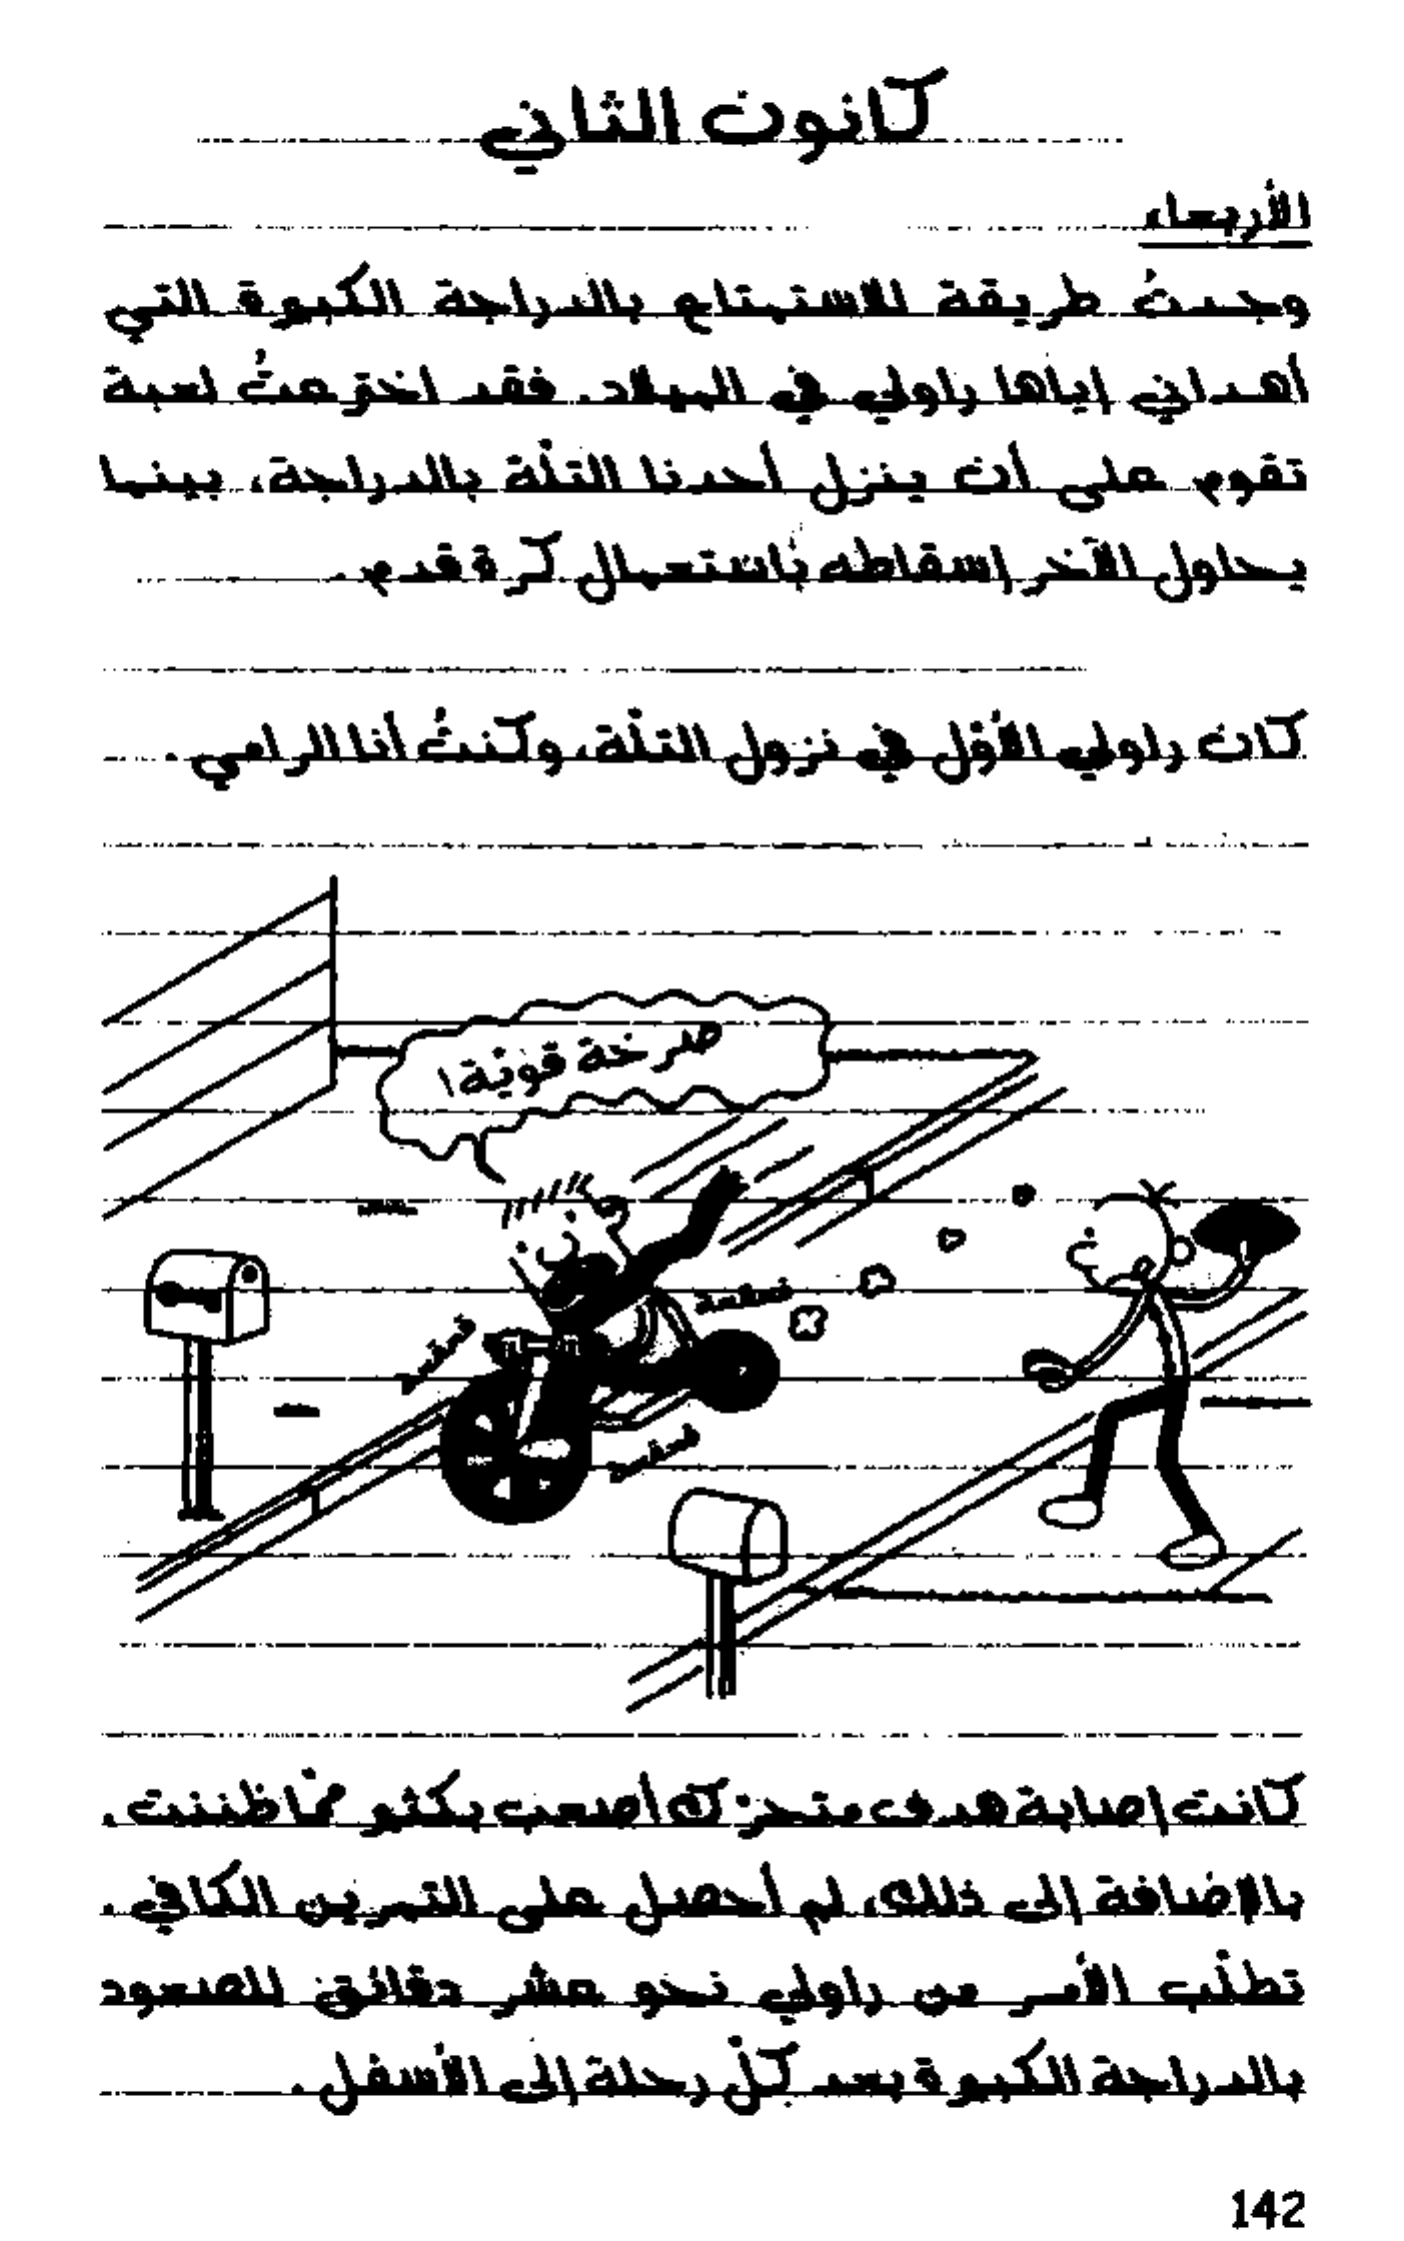 كانون الثاني
الأربعاء
وجدتُ طريقة للاستمتاع بالدراجة الكبيرة التي
أهداني إياها راولي في الميلاد. فقد اخترعتُ لعبة
تقوم على أن ينزل أحدنا التلّة بالدراجة، بينما
يحاول الآخر إسقاطه باستعمال كرة قدم.
كان راولي الأوّل في نزول التلّة، وكنتُ أنا الرامي.
صرخة قويّة!
كانت إصابة هدف متحرّك أصعب بكثير ممّا ظننت.
بالإضافة إلى ذلك، لم أحصل على التمرين الكافي.
تطلّب الأمر من راولي نحو عشر دقائق للصعود
بالدراجة الكبيرة بعد كلّ رحلة إلى الأسفل.
142